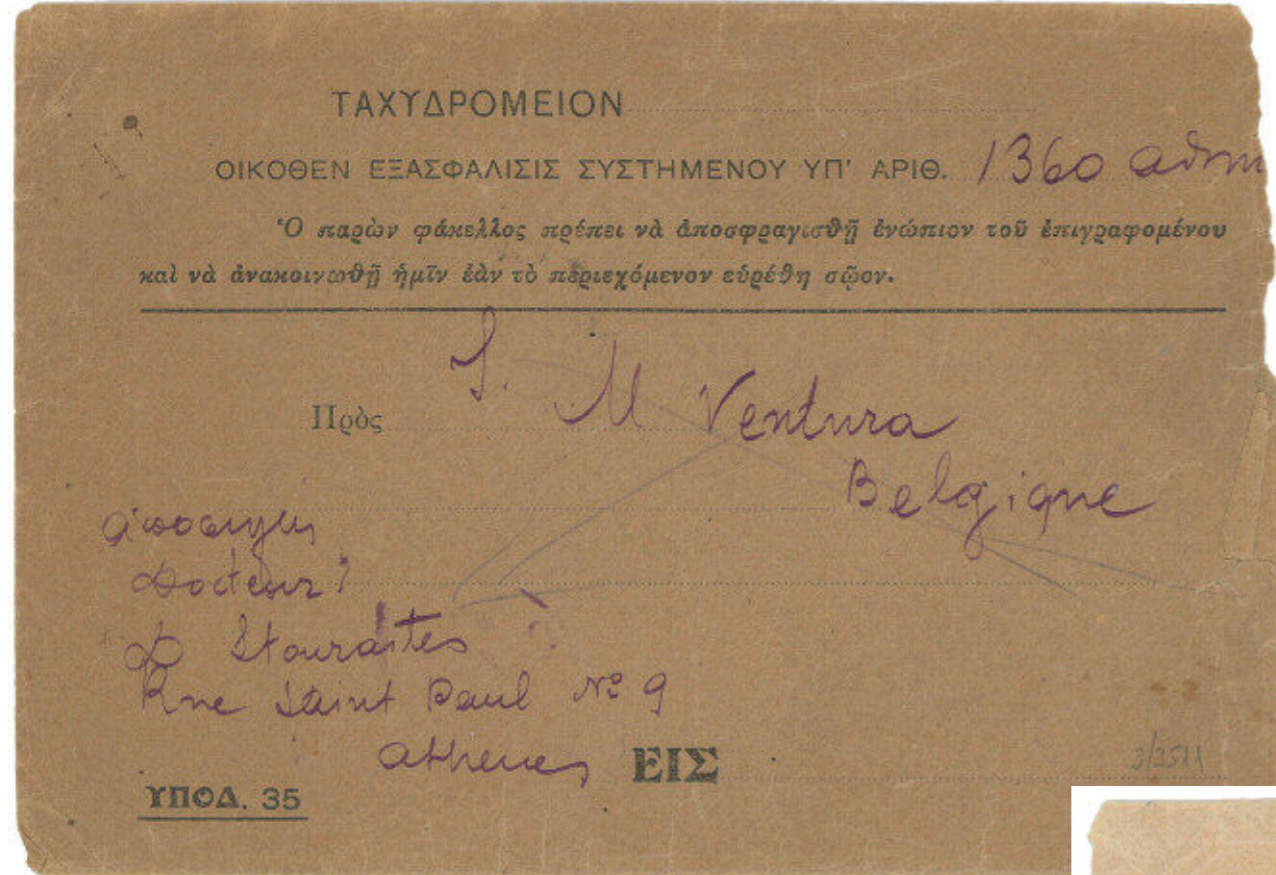 ΤΑΧΥΔΡΟΜΕΙΟΝ
ΟΙΚΟΘΕΝ ΕΞΑΣΦΑΛΙΣΙΣ ΣΥΣΤΗΜΕΝΟΥ ΥΠ' ΑΡΙΘ. 1360
Ὁ παρὼν φάκελλος πρέπει νὰ ἀποσφραγισθῇ ἐνώπιον τοῦ ἐπιγραφομένου
καὶ νὰ ἀνακοινωθῇ ἡμῖν ἐὰν τὸ περιεχόμενον εὑρέθη σῷον.
Πρὸς S. M Ventura
Belgique
Docteur
D Stouraïtes
Rue Saint Paul Nº 9
Athenes
ΕΙΣ
ΥΠΟΔ. 35